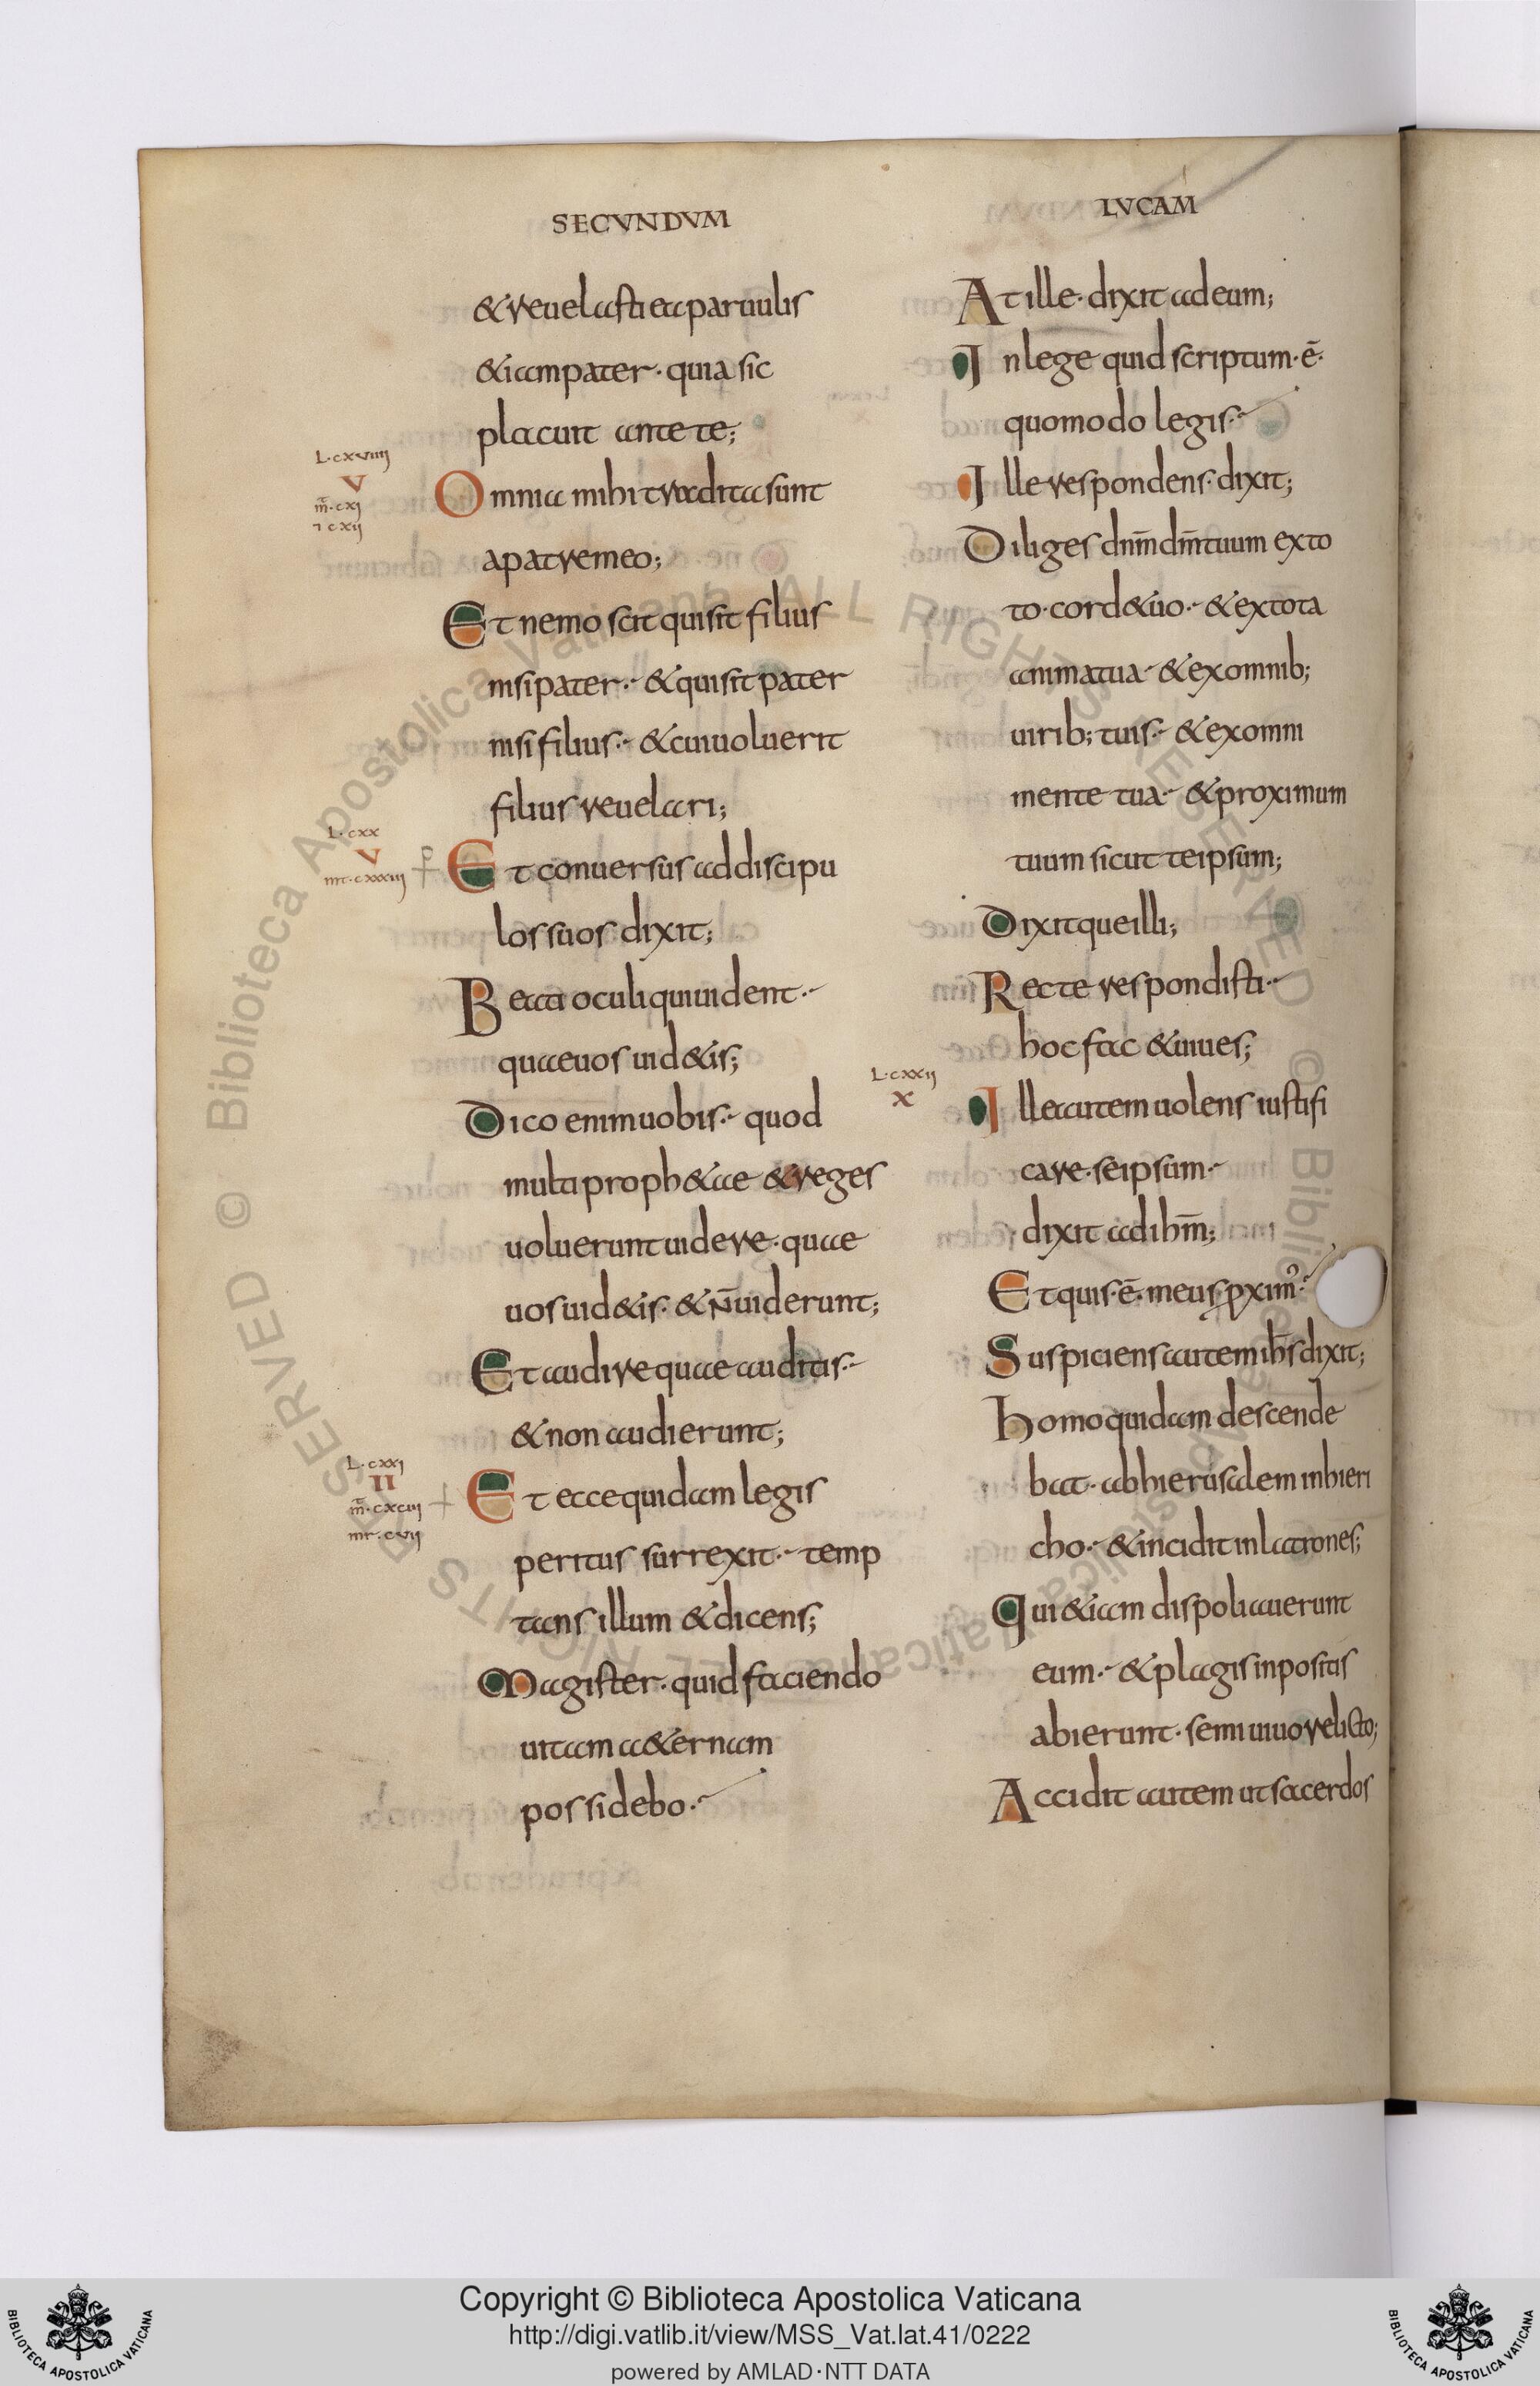 SECVNDVM
& reuelasti ea paruulis
& iam pater · quia sic
placuit ante te;
L·cxviiii
V
m̄·cxj
7 cxij
Omnia mihi tradita sunt
a patre meo;
Et nemo scit qui sit filius
nisi pater · & qui sit pater
nisi filius · & cui uoluerit
filius reuelari;
L·cxx
V
mt·cxxxiij
Et conuersus ad discipu
los suos dixit;
Beati oculi qui uident ·
quae uos uid&is;
Dico enim uobis · quod
multi proph&ae & reges
uoluerunt uidere · quae
uos uid&is · & n̄ uiderunt;
Et audire quae auditis ·
& non audierunt;
L·cxxi
II
m̄·cxciij
mr·cvij
Et ecce quidam legis
peritus surrexit · temp
tans illum & dicens;
Magister · quid faciendo
uitam a&ernam
possidebo ·
LVCAM
At ille · dixit ad eum;
In lege quid scriptum · ē ·
quomodo legis ·
Ille respondens · dixit;
Diliges dn̄m dm̄ tuum ex to
to · cord& uo · & ex tota
anima tua · & ex omnib;
uirib; tuis · & ex omni
mente tua · & proximum
tuum sicut te ipsum;
Dixitque illi;
Recte respondisti ·
hoc fac & uiues;
L·cxxij
X
Ille autem uolens iustifi
care · se ipsum ·
dixit ad ihm̄;
Et quis · ē · meus pxim' ·
Suspiciens autem ihs̄ dixit;
Homo quidam descende
bat · ab hierusalem in hieri
cho · & incidit in latrones;
Qui & iam dispoliauerunt
eum · & plagis inpositis
abierunt · semi uiuo relicto;
Accidit autem ut sacerdos
© Biblioteca Apostolica Vaticana ALL RIGHTS RESERVED © Biblioteca Apostolica Vaticana ALL RIGHTS RESERVED
Copyright © Biblioteca Apostolica Vaticana
http://digi.vatlib.it/view/MSS_Vat.lat.41/0222
powered by AMLAD·NTT DATA
BIBLIOTECA APOSTOLICA VATICANA
BIBLIOTECA APOSTOLICA VATICANA